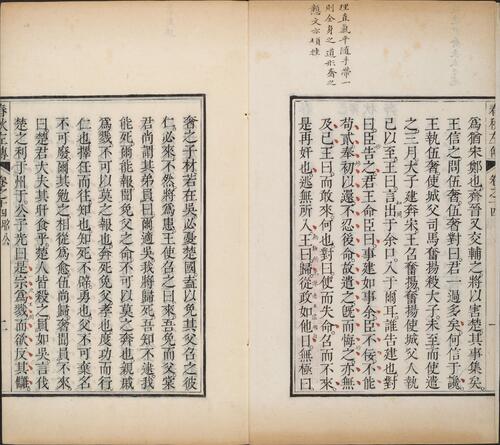 理直氣平隨手帶一
則全身之道形奢之
春秋左傳 卷二十四 一
爲猶宋鄭也齊晉又交輔之將以害楚其事集矣
王信之問伍奢伍奢對曰君一過多矣何信于讒
王執伍奢使城父司馬奮揚殺大子未至而使遣
之三月大子建奔宋王召奮揚奮揚使城父人執
己以至王曰言出于余口入于爾耳誰告建也對
曰臣告之君王命臣曰事建如事余臣不佞不能
苟貳奉初以還不忍後命故遣之旣而悔之亦無
及已王曰而敢來何也對曰使而失命召而不來
是再奸也逃無所入王曰歸從政如他日無極曰
奢之子材若在吳必憂楚國盍以免其父召之彼
仁必來不然將爲患王使召之曰來吾免而父棠
君尚謂其弟員曰爾適吳我將歸死吾知不逮我
能死爾能報聞免父之命不可以莫之奔也親戚
爲戮不可以莫之報也奔死免父孝也度功而行
仁也擇任而往知也知死不辟勇也父不可棄名
不可廢爾其勉之相從爲愈伍尚歸奢聞員不來
曰楚君大夫其旰食乎楚人皆殺之員如吳言伐
楚之利于州于公子光曰是宗爲戮而欲反其讎
春秋左傳 卷二十四 昭公 二